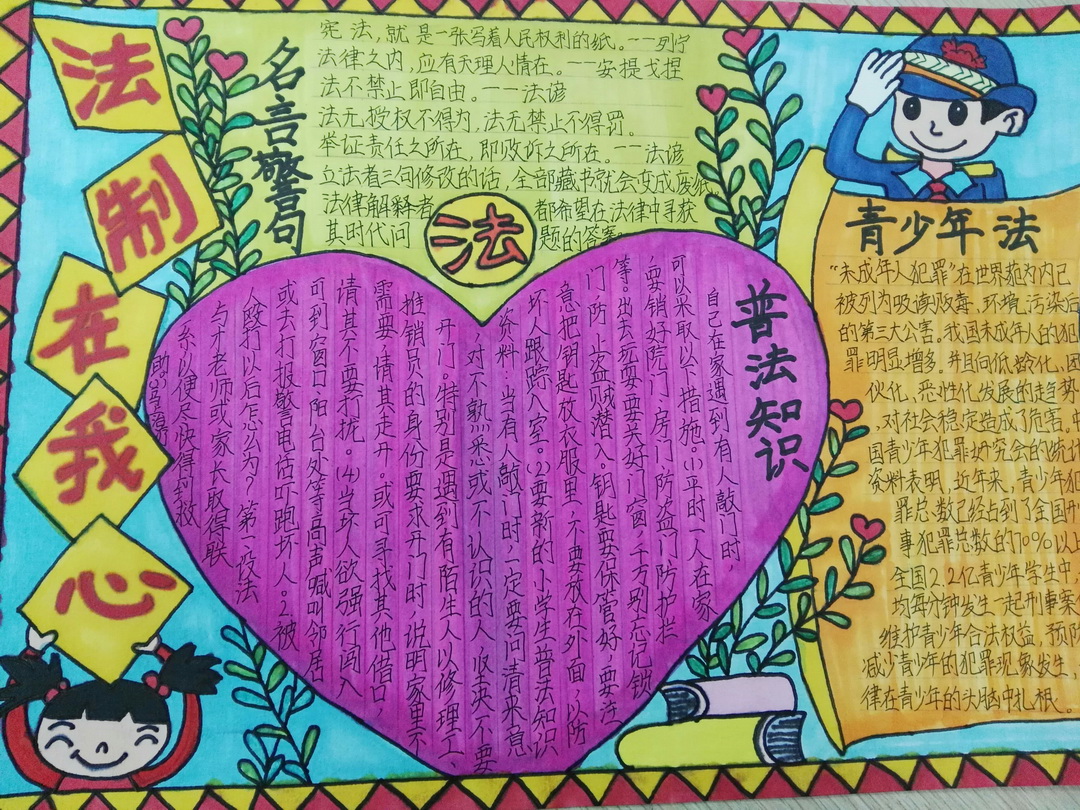 法
制
在
我
心
名言警句
宪法,就是一张写着人民权利的纸。——列宁
法律之内,应有天理人情在。——安提戈捏
法不禁止即自由。——法谚
法无授权不得为,法无禁止不得罚。
举证责任之所在,即败诉之所在。——法谚
立法者三句修改的话,全部藏书就会变成废纸
法律解释者 都希望在法律中寻获
其时代问 题的答案
法
普法知识
自己在家遇到有人敲门时,
可以采取以下措施。(1)平时一人在家
要锁好院门、房门、防盗门、防护栏
等,出去玩耍要关好门窗,千万别忘记锁
门,防止盗贼潜入。钥匙要保管好,要注
意把钥匙放衣服里,不要放在外面,以防
坏人跟踪入室。(2)要新的小学生普法知识
资料:当有人敲门时,一定要问清来意
,对不熟悉或不认识的人,坚决不要
开门。特别是遇到有陌生人以修理工、
推销员的身份要求开门时,说明家里不
需要,请其走开。或可寻找其他借口,
请其不要打扰。(4)当坏人欲强行闯入
可到窗口、阳台处等高声喊叫邻居
或去打报警电话吓跑坏人。2.被
殴打以后怎么为?第一设法
与于老师或家长取得联
系以便尽快得到救
青少年法
“未成年人犯罪”在世界范内内已
被列为吸读贩毒、环境污染后
的第三大公害。我国未成年人的犯
罪明显增多。并且向低龄化、团
伙化、恶性化发展的趋势
对社会稳定造成了危害。中
国青少年犯罪研究会的统计
资料表明,近年来,青少年犯
罪总数已经占到了全国刑
事犯罪总数的70%以上
全国2.2亿青少年学生中,
均每分钟发生一起刑事案
维护青少年合法权益,预防
减少青少年的犯罪现象发生,
律在青少年的头脑中扎根。